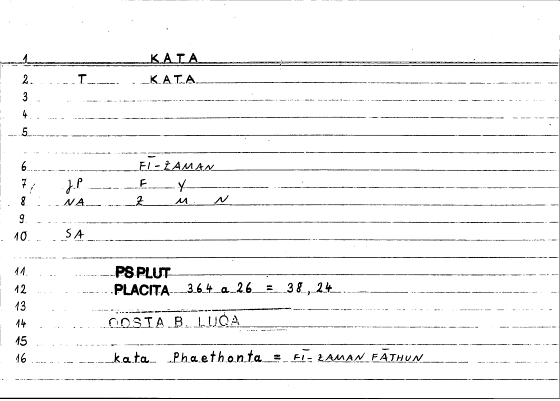 1 KATA
2 T KATA
3
4
5
6 FĪ-ZAMAN
7 J.P F Y
8 NA Z M N
9
10 SA
11 PS PLUT
12 PLACITA 364 a 26 = 38,24
13
14 QOSTA B. LUQA
15
16 kata Phaethonta = FĪ-ZAMAN FĀTHUN